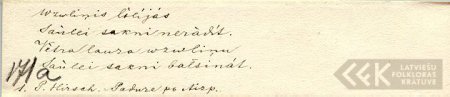 wzwlinis lölijás
Saũlei sakni nerãdít.
Vêtra lauza wzwlinu
Saũlei sakni balsinát.
171a
1. P. Hirsch. Padure pa Aizp.
LATVIEŠU
FOLKLORAS
KRĀTUVE